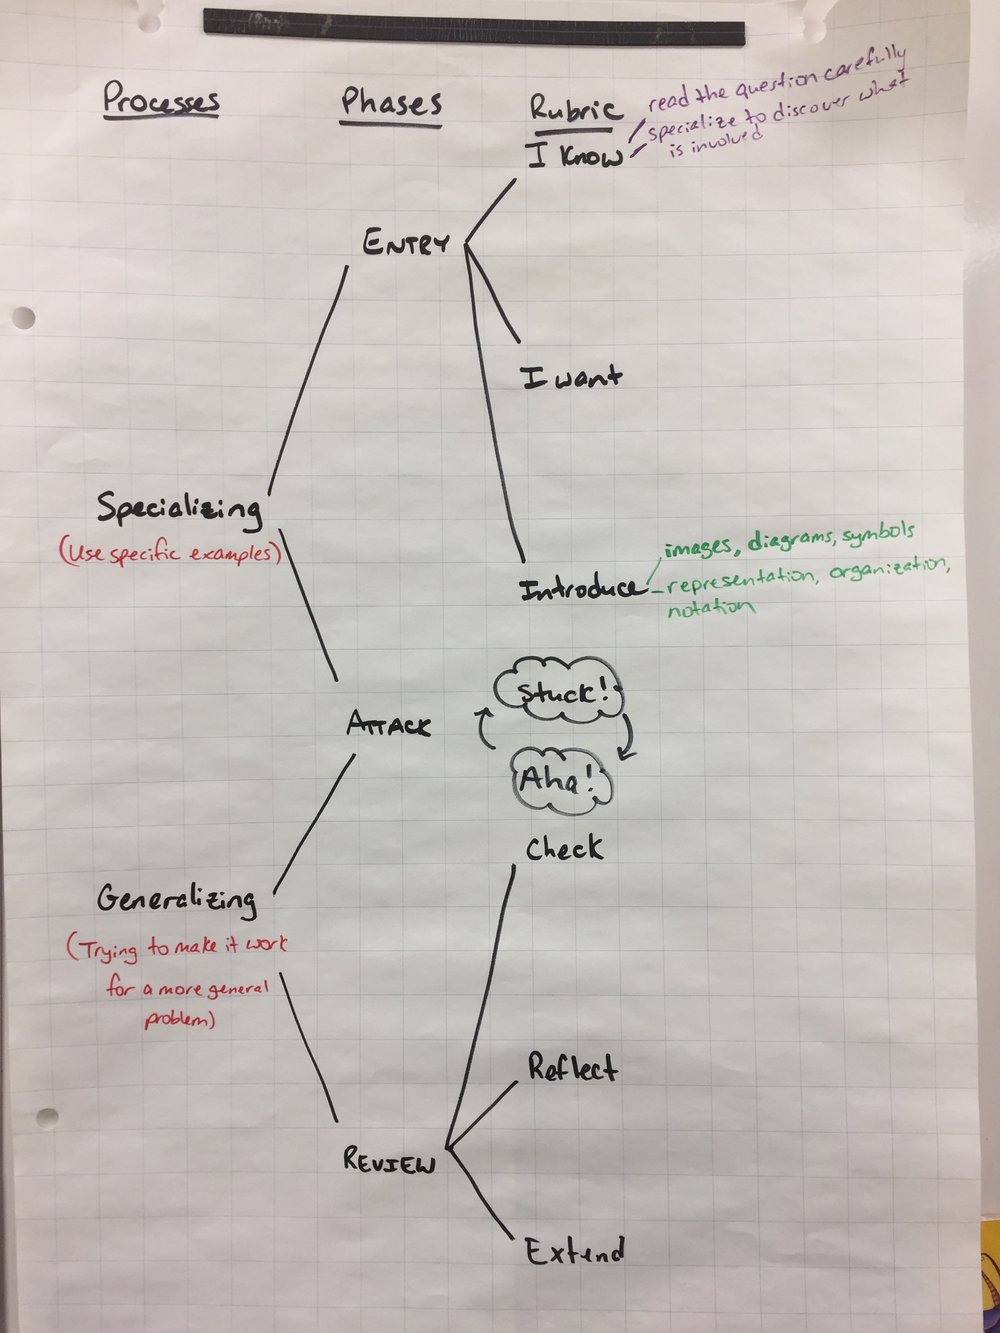 Processes
Phases
Rubric
read the question carefully
specialize to discover what
is involved
I Know
ENTRY
I want
Specializing
(Use specific examples)
images, diagrams, symbols
Introduce
representation, organization,
notation
Stuck!
ATTACK
Aha!
Check
Generalizing
(Trying to make it work
for a more general
problem)
Reflect
REVIEW
Extend